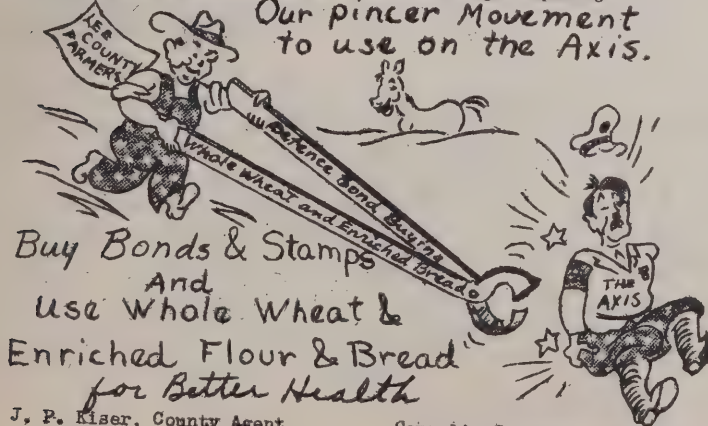 Our pincer Movement
to use on the Axis.
LEE
COUNTY
FARMERS
Defence Bond Buying
Whole Wheat and Enriched Bread
THE
AXIS
Buy Bonds & Stamps
And
Use Whole Wheat &
Enriched Flour & Bread
for Better Health
J. P. Kiser, County Agent